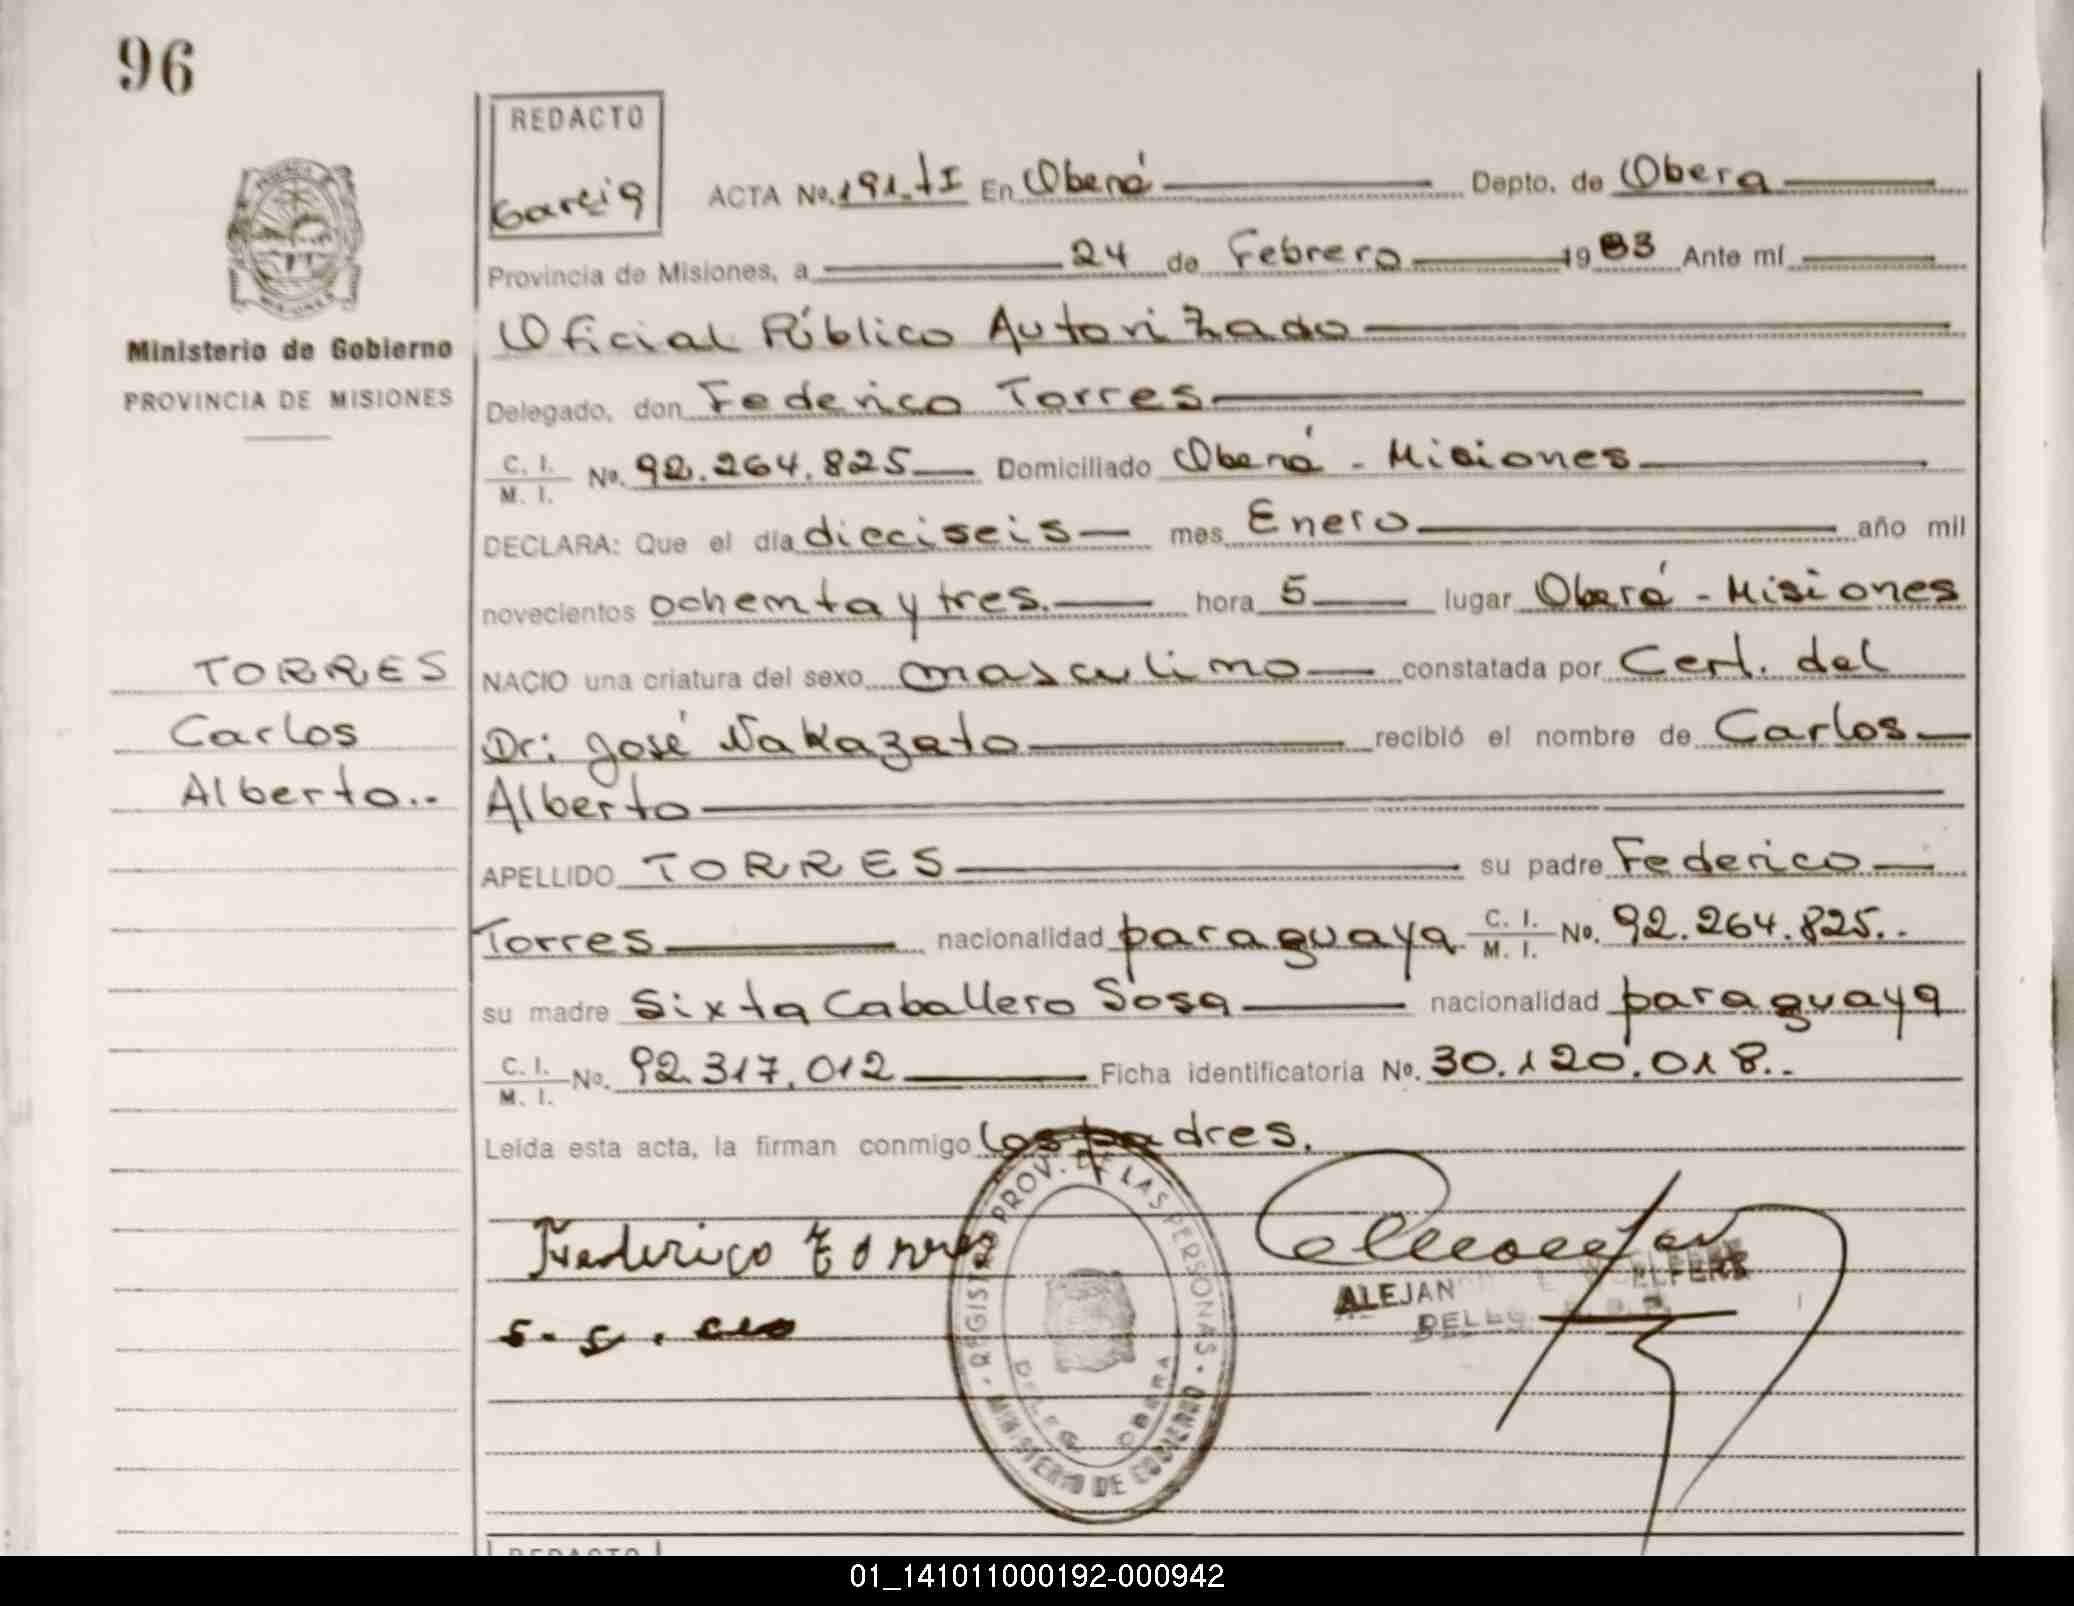 96
REDACTO
Garcia
ACTA No. 191.tI En Oberá Depto. de Obera
Provincia de Misiones, a 24 de Febrero 1983 Ante mí
Oficial Público Autorizado
Ministerio de Gobierno
PROVINCIA DE MISIONES
Delegado, don Federico Torres
C. I. / M. I. No. 92.264.825 Domiciliado Oberá - Misiones
DECLARA: Que el día dieciseis mes Enero año mil
novecientos ochenta y tres. hora 5 lugar Oberá - Misiones
TORRES
Carlos
Alberto..
NACIO una criatura del sexo masculino constatada por Cert. del
Dr: José Nakazato recibió el nombre de Carlos
Alberto
APELLIDO TORRES su padre Federico
Torres nacionalidad paraguaya C. I. / M. I. No. 92.264.825..
su madre Sixta Caballero Sosa nacionalidad paraguaya
C. I. / M. I. No. 92.317.012 Ficha identificatoria No. 30.120.018..
Leída esta acta, la firman conmigo los padres.
Federico Torres
REGISTRO PROV. DE LAS PERSONAS
MINISTERIO DE GOBIERNO
DELEG. OBERA
ALEJAN
REDACTO
01_141011000192-000942